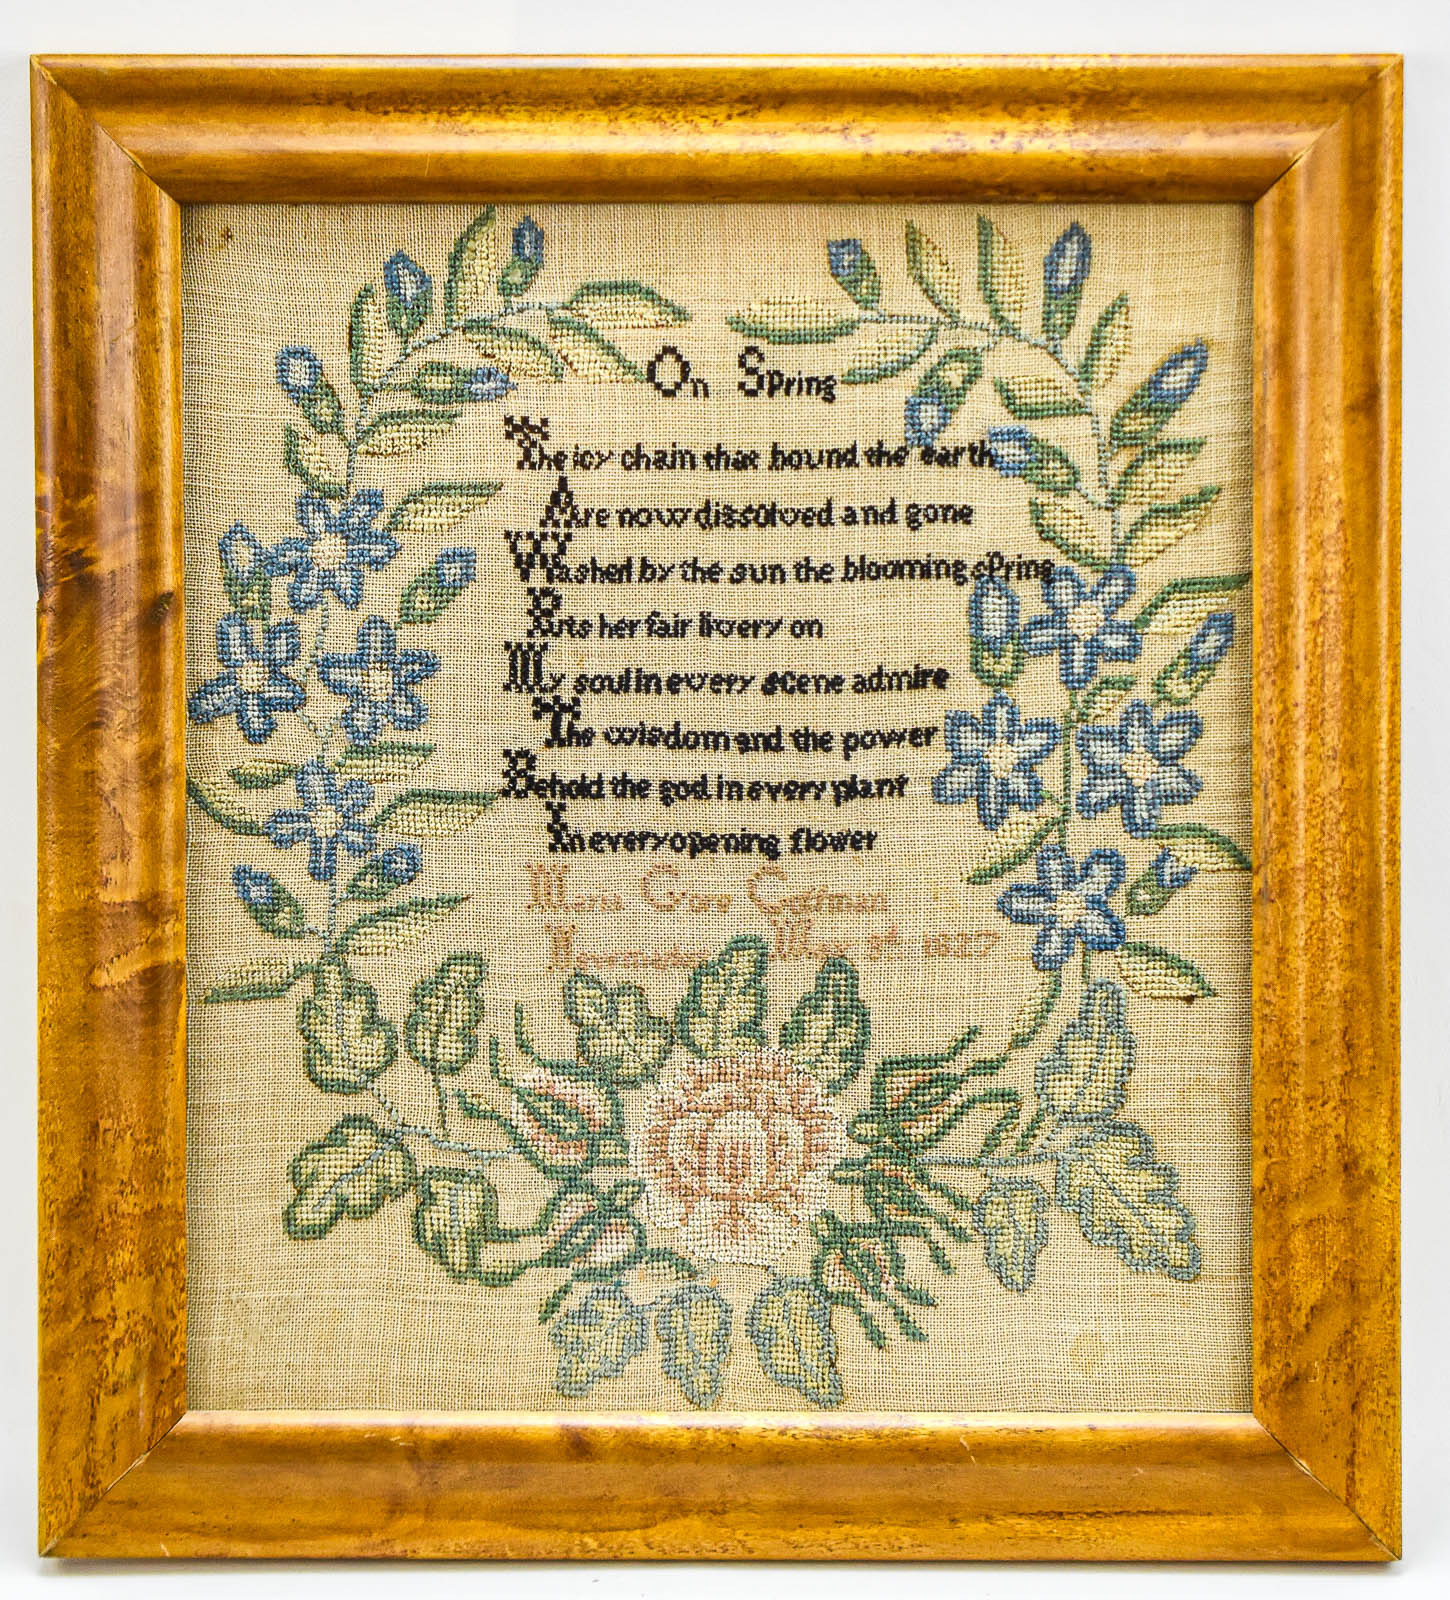 On Spring
The icy chain that bound the earth
Are now dissolved and gone
Washed by the sun the blooming spring
Puts her fair livery on
My soul in every scene admire
The wisdom and the power
Behold the god in every plant
In every opening flower
Maria
May 1827